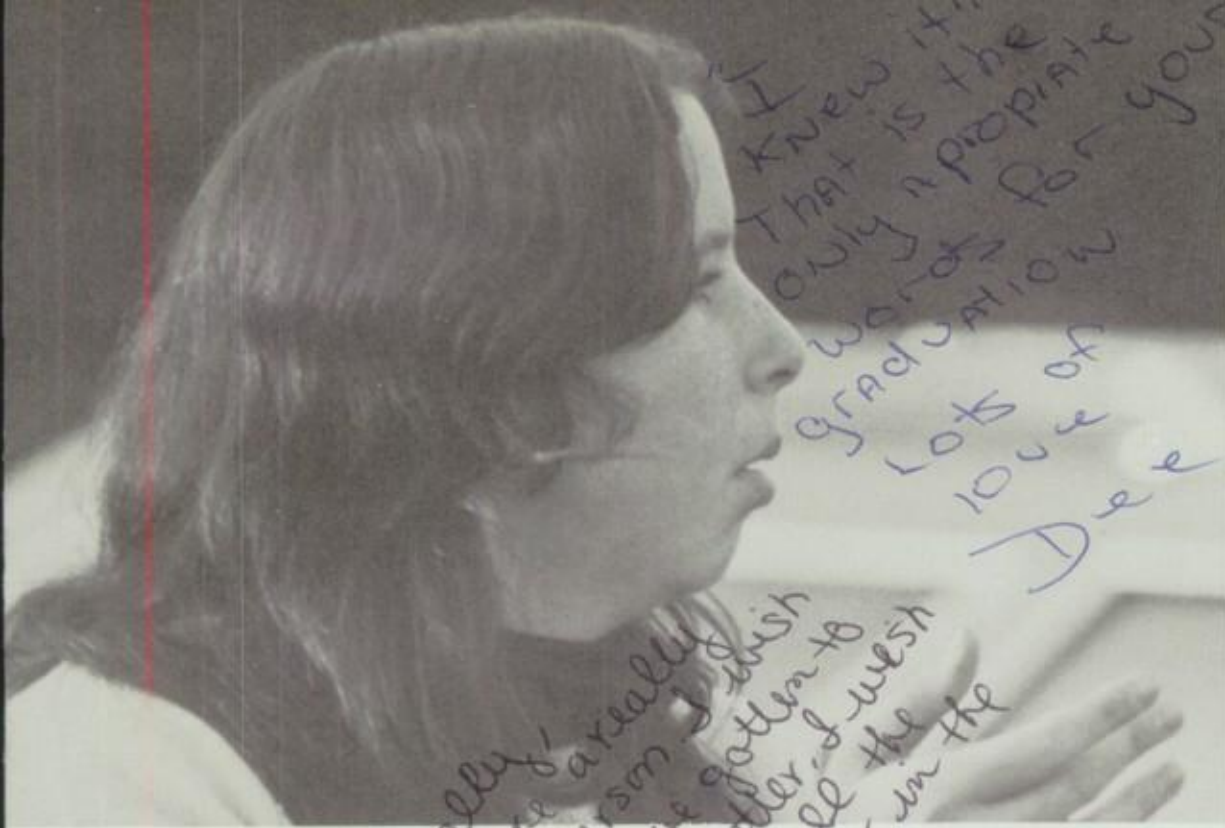 "I
Knew it"
That is the
only apropiate
words for your
graduation
Lots of
love
Dee
a really
I wish
gotten to
I wish
the
in the